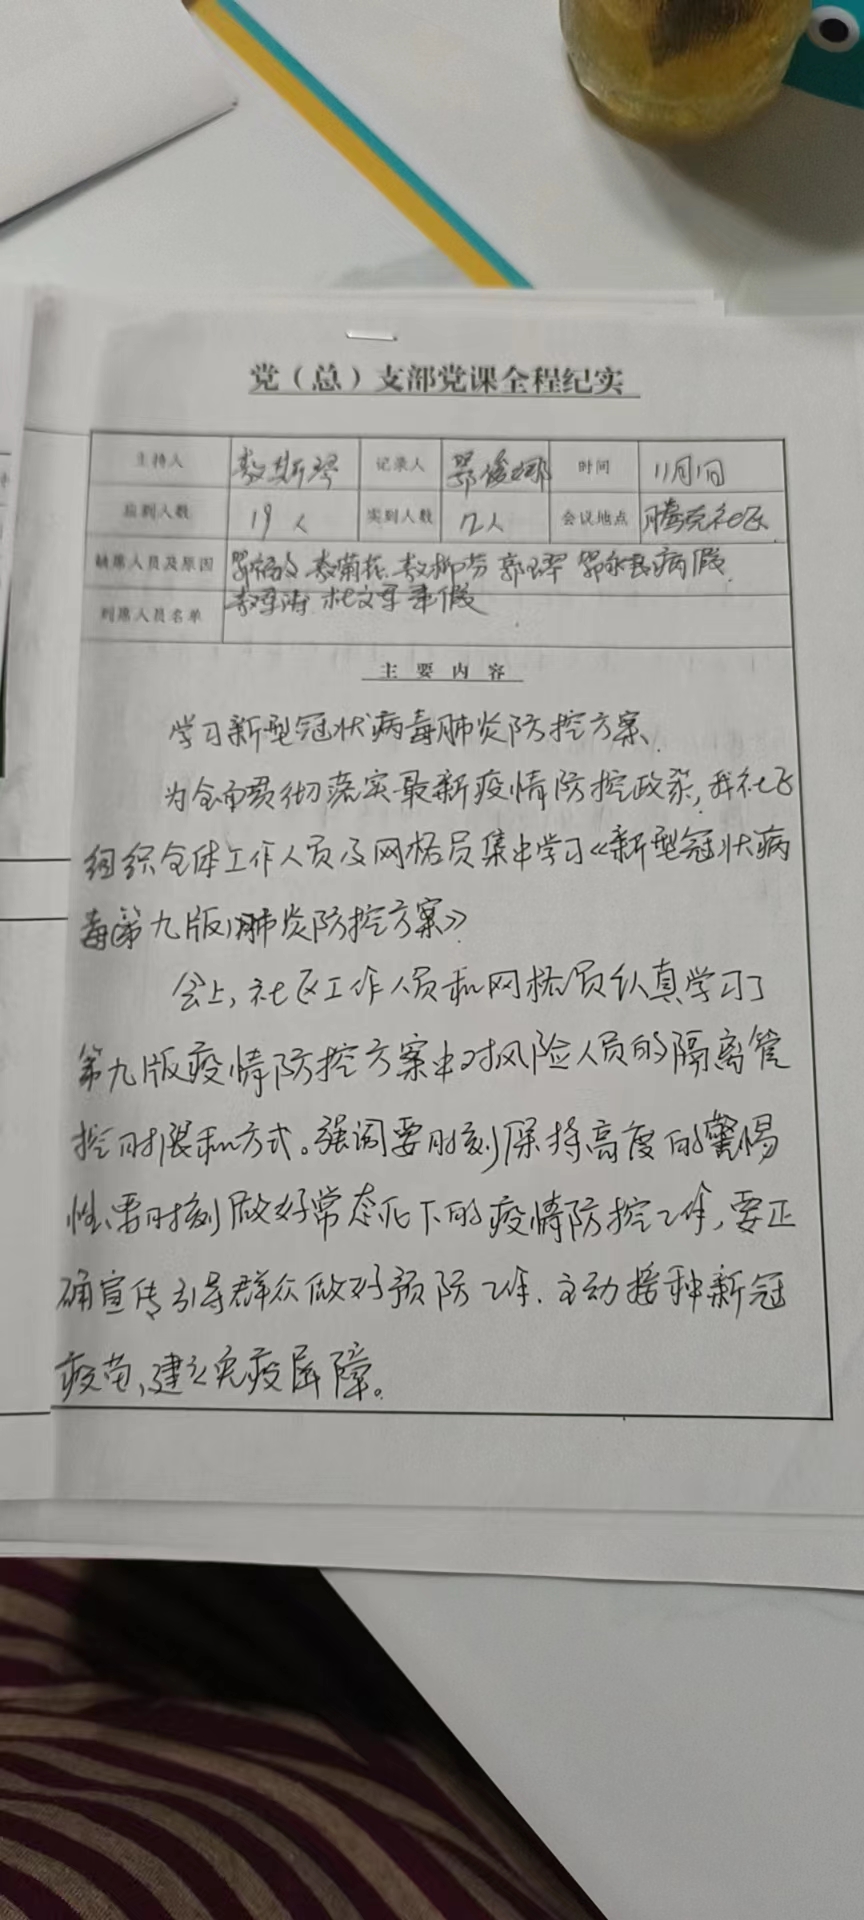 党（总）支部党课全程纪实
主持人 记录人 时间 11月1日
应到人数 19人 实到人数 12人 会议地点 社区
缺席人员及原因 病假
列席人员名单 事假
主要内容
学习新型冠状病毒肺炎防控方案、
为全面贯彻落实最新疫情防控政策，我社区
组织全体工作人员及网格员集中学习《新型冠状病
毒(第九版)肺炎防控方案》
会上，社区工作人员和网格员认真学习了
第九版疫情防控方案中对风险人员的隔离管
控时限和方式。强调要时刻保持高度的警惕
性、要时刻做好常态化下的疫情防控工作，要正
确宣传引导群众做好预防工作、主动接种新冠
疫苗，建立免疫屏障。